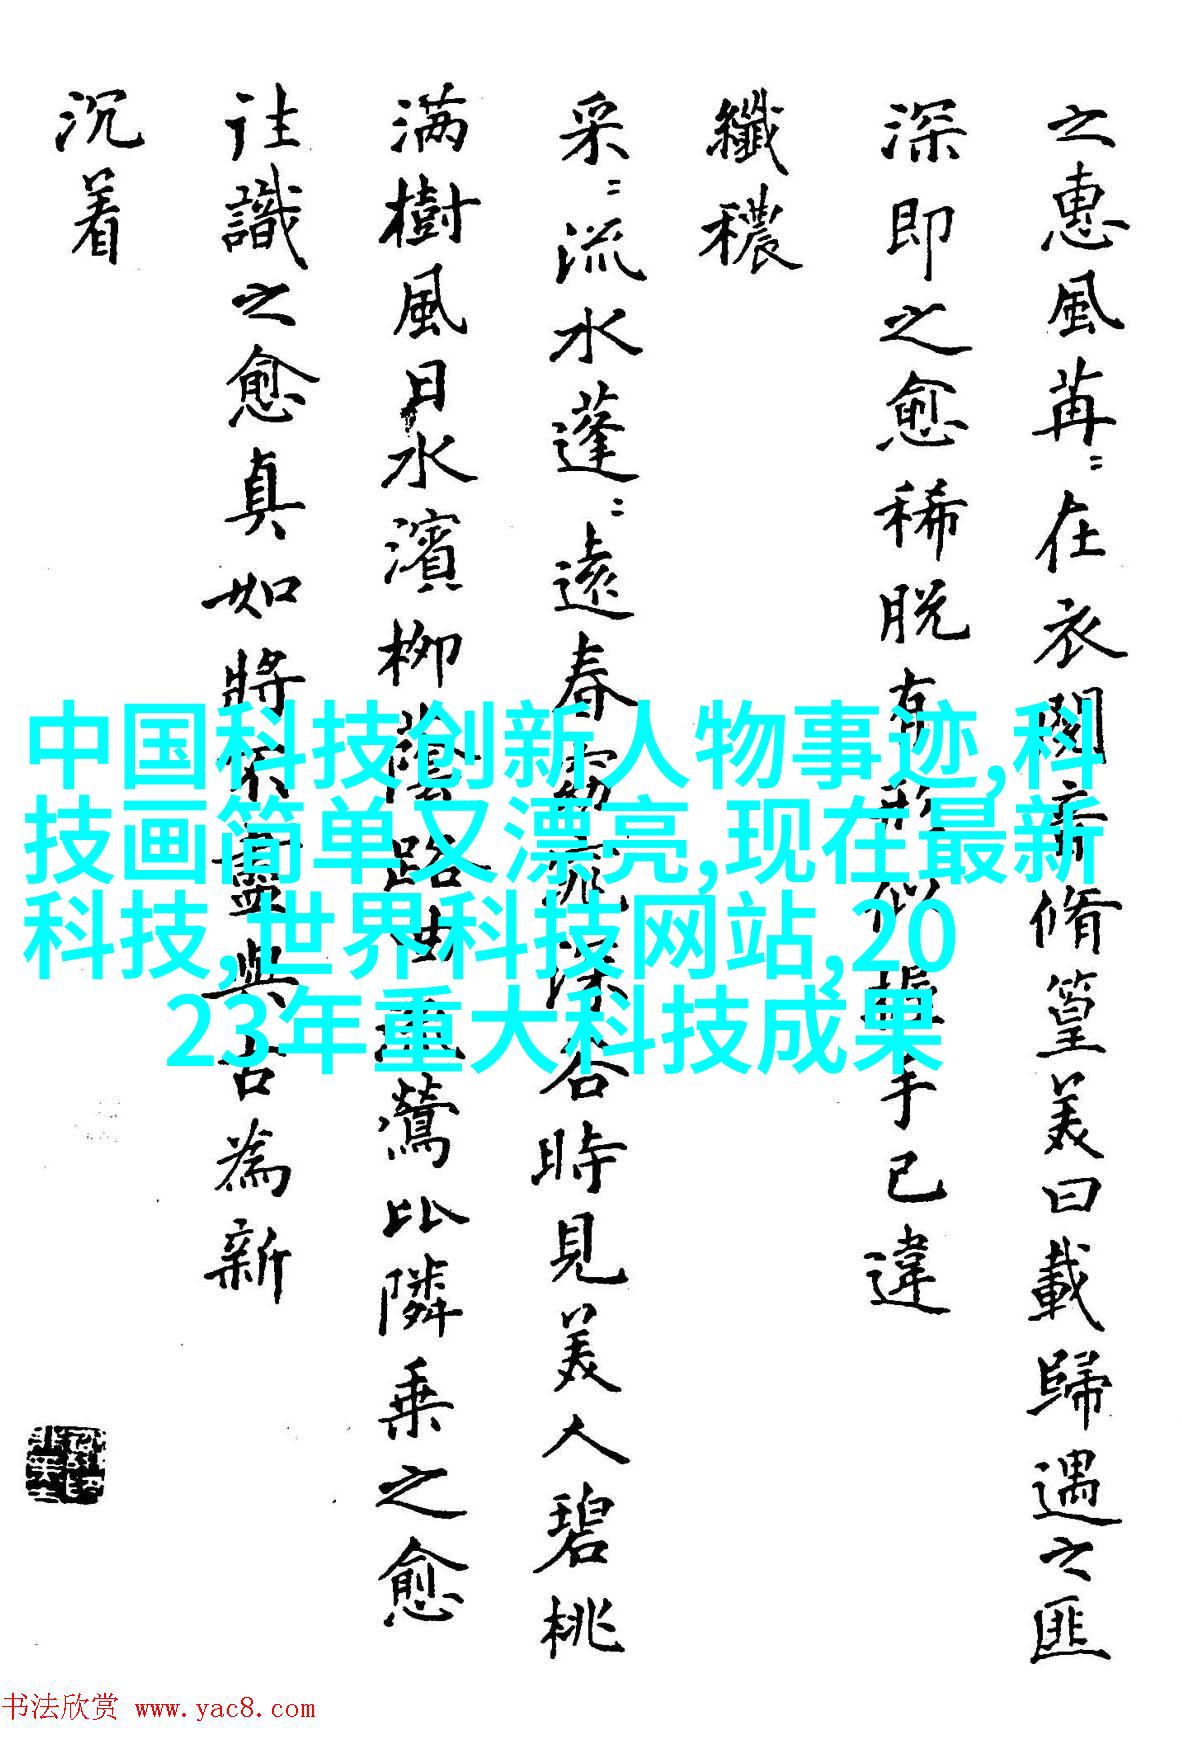 之惠風苒〻在衣閱音脩篁美曰載歸遇之匪
深即之愈稀脫有形似握手已違
纖穠
采〻流水蓬〻遠春窈窕深谷時見美人碧桃
满樹風日水濱柳蔭路曲流鶯比隣乗之愈
往識之愈真如將不盡與古為新
沉着
中国科技创新人物事迹,科
技画简单又漂亮,现在最新
科技,世界科技网站,20
23年重大科技成果
书法欣赏 www.yac8.com